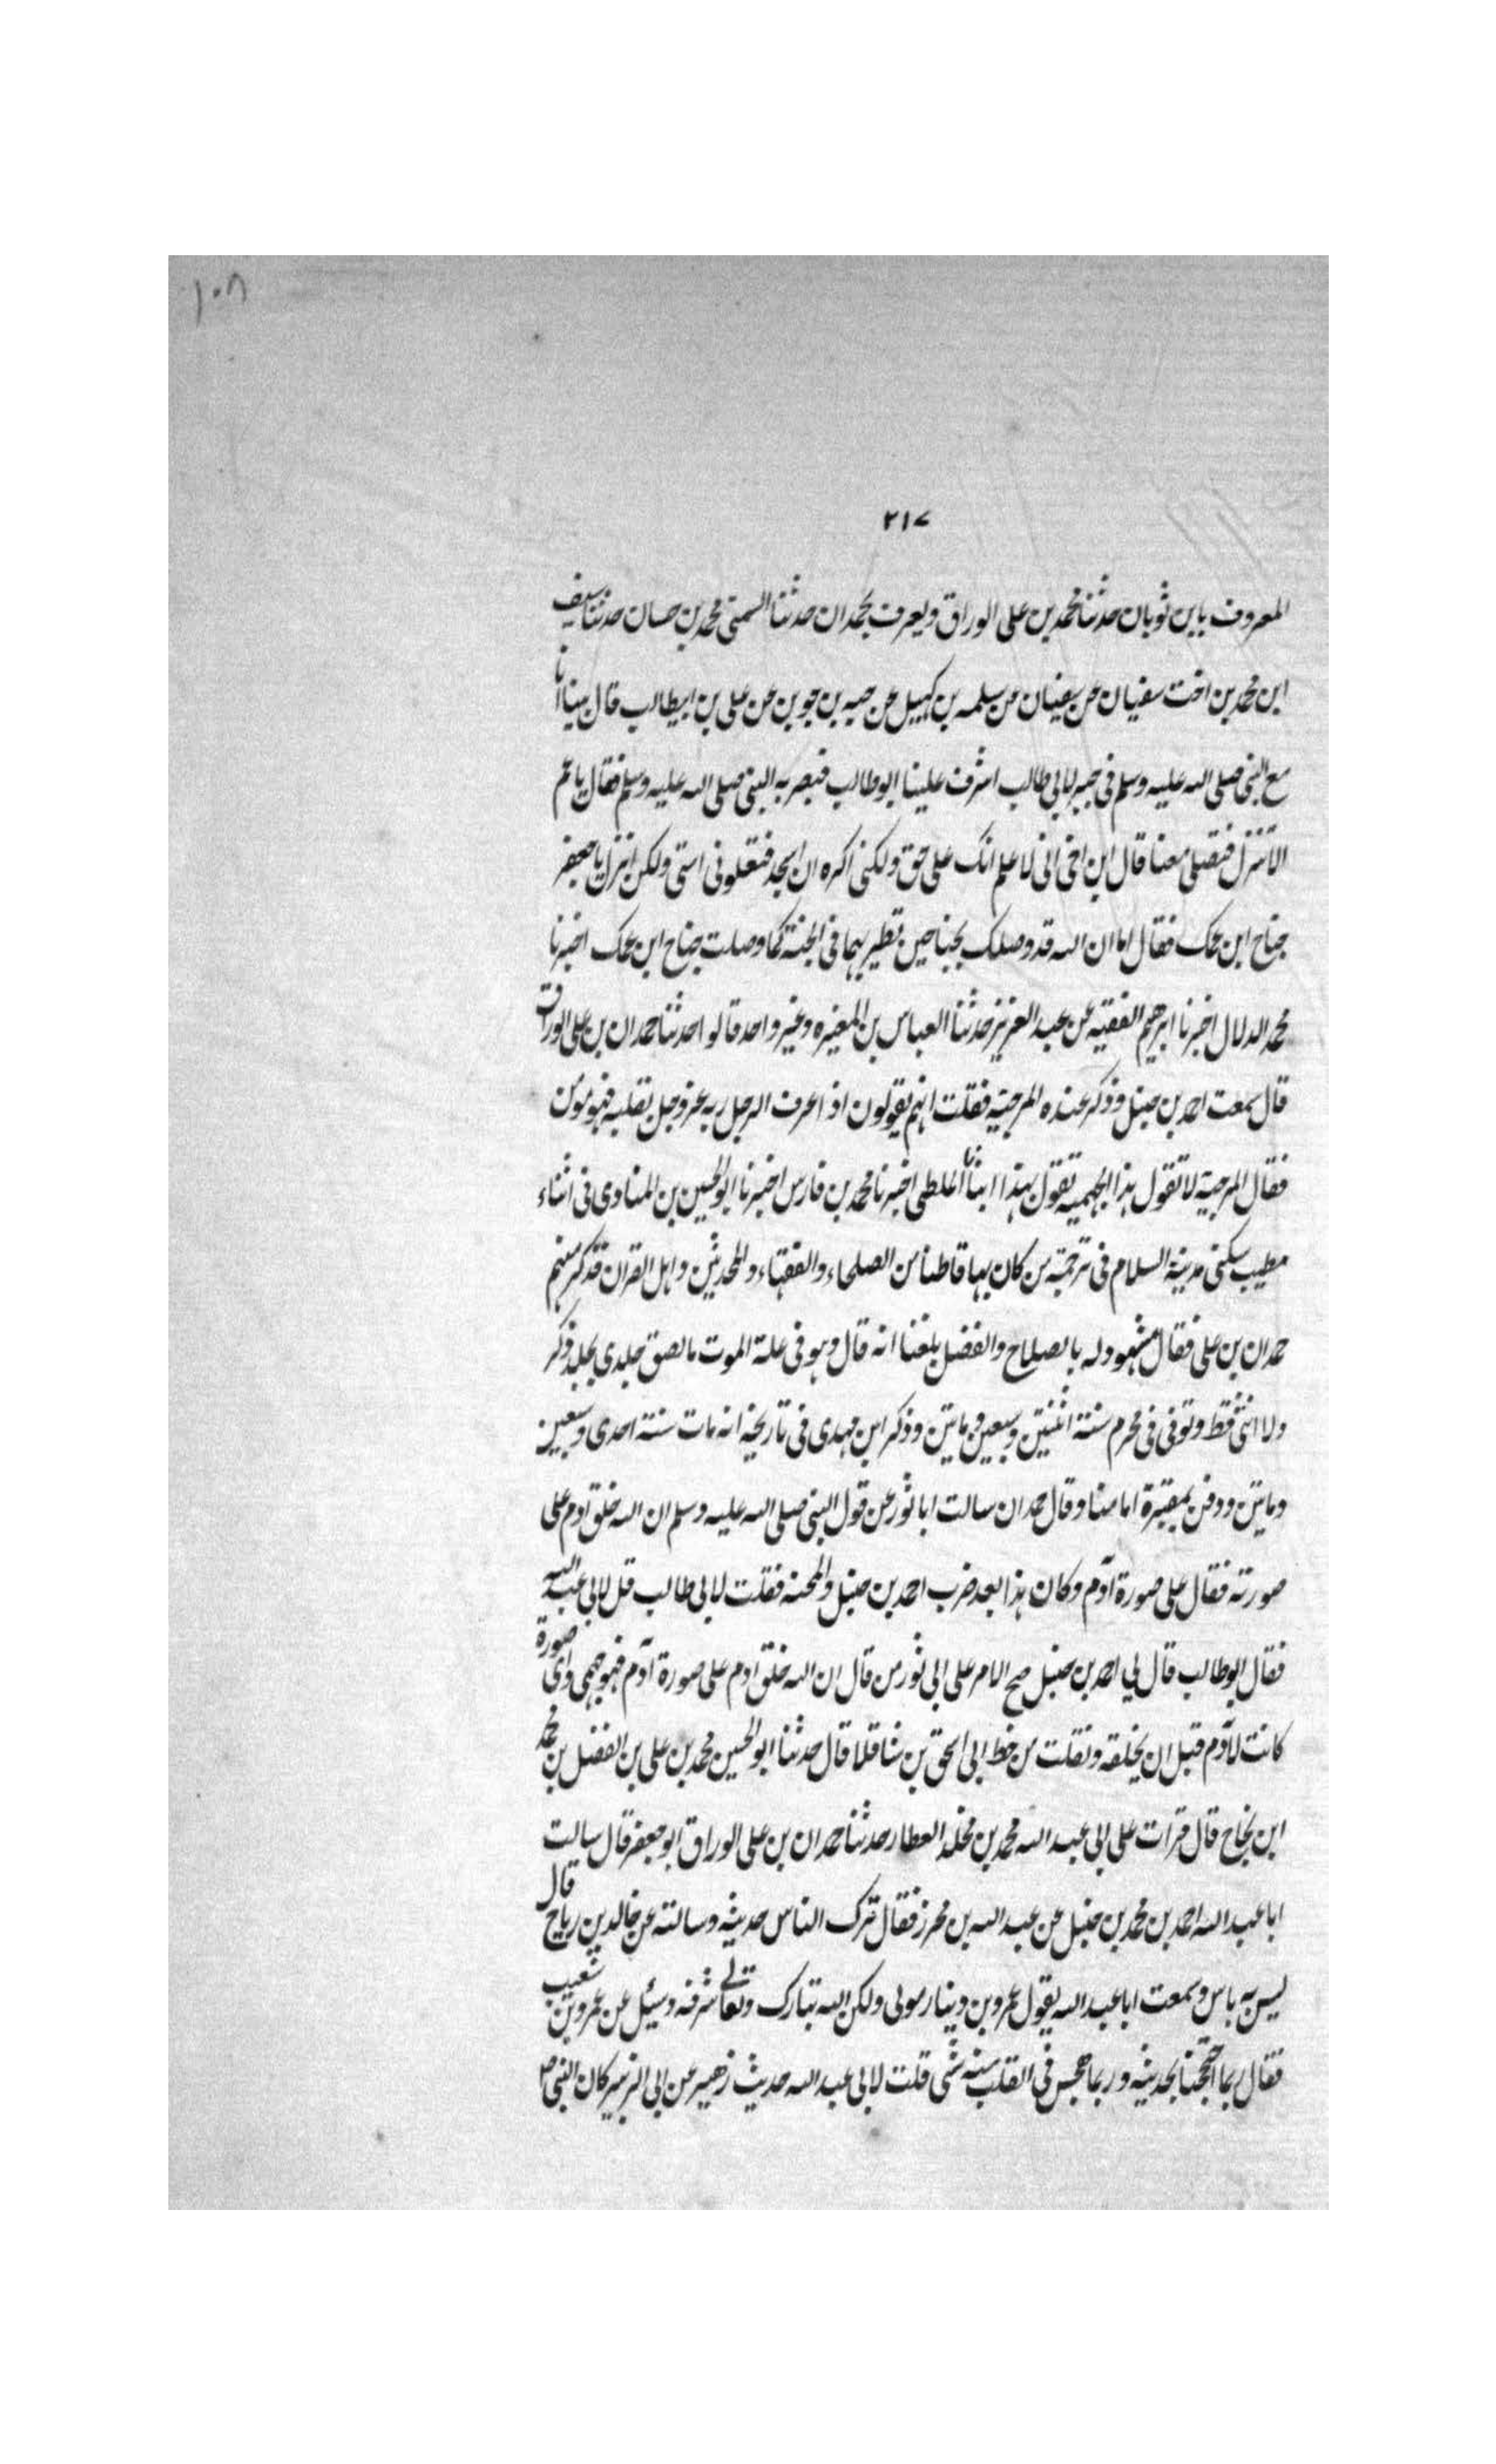 ١٠٨
٢١٧
المعروف باين ثوبان حدثنا محمد بن على الوراق ويعرف بحمدان حدثنا السمتى محمد بن حسان حدثنا سيف
ابن محمد بن اخت سفيان عن سفيان عن سلمه بن كهيل عن حبه بن جوين عن على بن ابيطالب قال بينا انا
مع النبى صلى الله عليه وسلم فى حير لابى طالب اشرف علينا ابوطالب فبصر به النبى صلى الله عليه وسلم فقال ياعم
الا تنزل فتصلى معنا قال ابن اخى انى لاعلم انك على حق ولكنى اكره ان اسجد فتعلونى استى ولكن انزل يا جعفر
جناح ابن عمك فقال اما ان الله قد وصلك بجناحين تطير بهما فى الجنة كما وصلت جناح ابن عمك اخبرنا
محمد الدلال اخبرنا ابرهيم الفقيه عن عبد العزيز حدثنا العباس بن المغيره وغير واحد قالوا حدثنا حمدان بن على الوراق
قال سمعت احمد بن حنبل وذكر عنده المرجيه فقلت انهم يقولون اذا عرف الرجل ربه عز وجل بقلبه فهو مومن
فقال المرجية لا تقول هذا الجهميه تقول بهذا انبأنا على اخبرنا محمد بن فارس اخبرنا ابوالحسين بن المناوى فى اثناء
مطيب سكنى مدينة السلام فى ترجمة من كان بها قاطنا من الصلحاء والفقهاء والمحدثين واهل القران فذكر منهم
حمدان بن على فقال مشهود له بالصلاح والفضل بلغنا انه قال وهو فى علة الموت مالصق جلدى بجلد ذكر
ولا انثى قط وتوفى فى محرم سنة اثنتين وسبعين وماتين وذكر ابن مهدى فى تاريخه انه مات سنة احدى وسبعين
وماتين ودفن بمقبرة امامنا وقال حمدان سالت ابا ثور عن قول النبى صلى الله عليه وسلم ان الله خلق ادم على
صورته فقال على صورة آدم وكان هذا بعد ضرب احمد بن حنبل والمحنه فقلت لابى طالب قل لابى عبد الله
فقال ابوطالب قال لى احمد بن حنبل صح الامر على ابى ثور من قال ان الله خلق ادم على صورة آدم فهو جهمى واى صورة
كانت لآدم قبل ان يخلقه ونقلت من خط ابى اسحق بن شاقلا قال حدثنا ابوالحسين محمد بن على بن الفضل بن محمد
ابن نجاح قال قرات على ابى عبد الله محمد بن مخلد العطار حدثنا حمدان بن على الوراق ابوجعفر قال سالت
ابا عبد الله احمد بن محمد بن حنبل عن عبد الله بن محرز فقال ترك الناس حديثه وسالته عن خالد بن رباح قال
ليس به باس وسمعت ابا عبد الله يقول عمرو بن دينار مولى ولكن الله تبارك وتعالى شرفه وسئل عن عمرو بن شعيب
فقال ربما احتججنا بحديثه وربما هجس فى القلب منه شى قلت لابى عبد الله حديث زهير عن ابى الزبير كان النبى ص